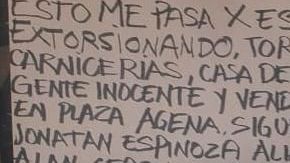 ESTO ME PASA X ES
EXTORSIONANDO, TOR
CARNICERIAS, CASA DE
GENTE INOCENTE Y VEND
EN PLAZA AGENA. SIGU
JONATAN ESPINOZA ALU